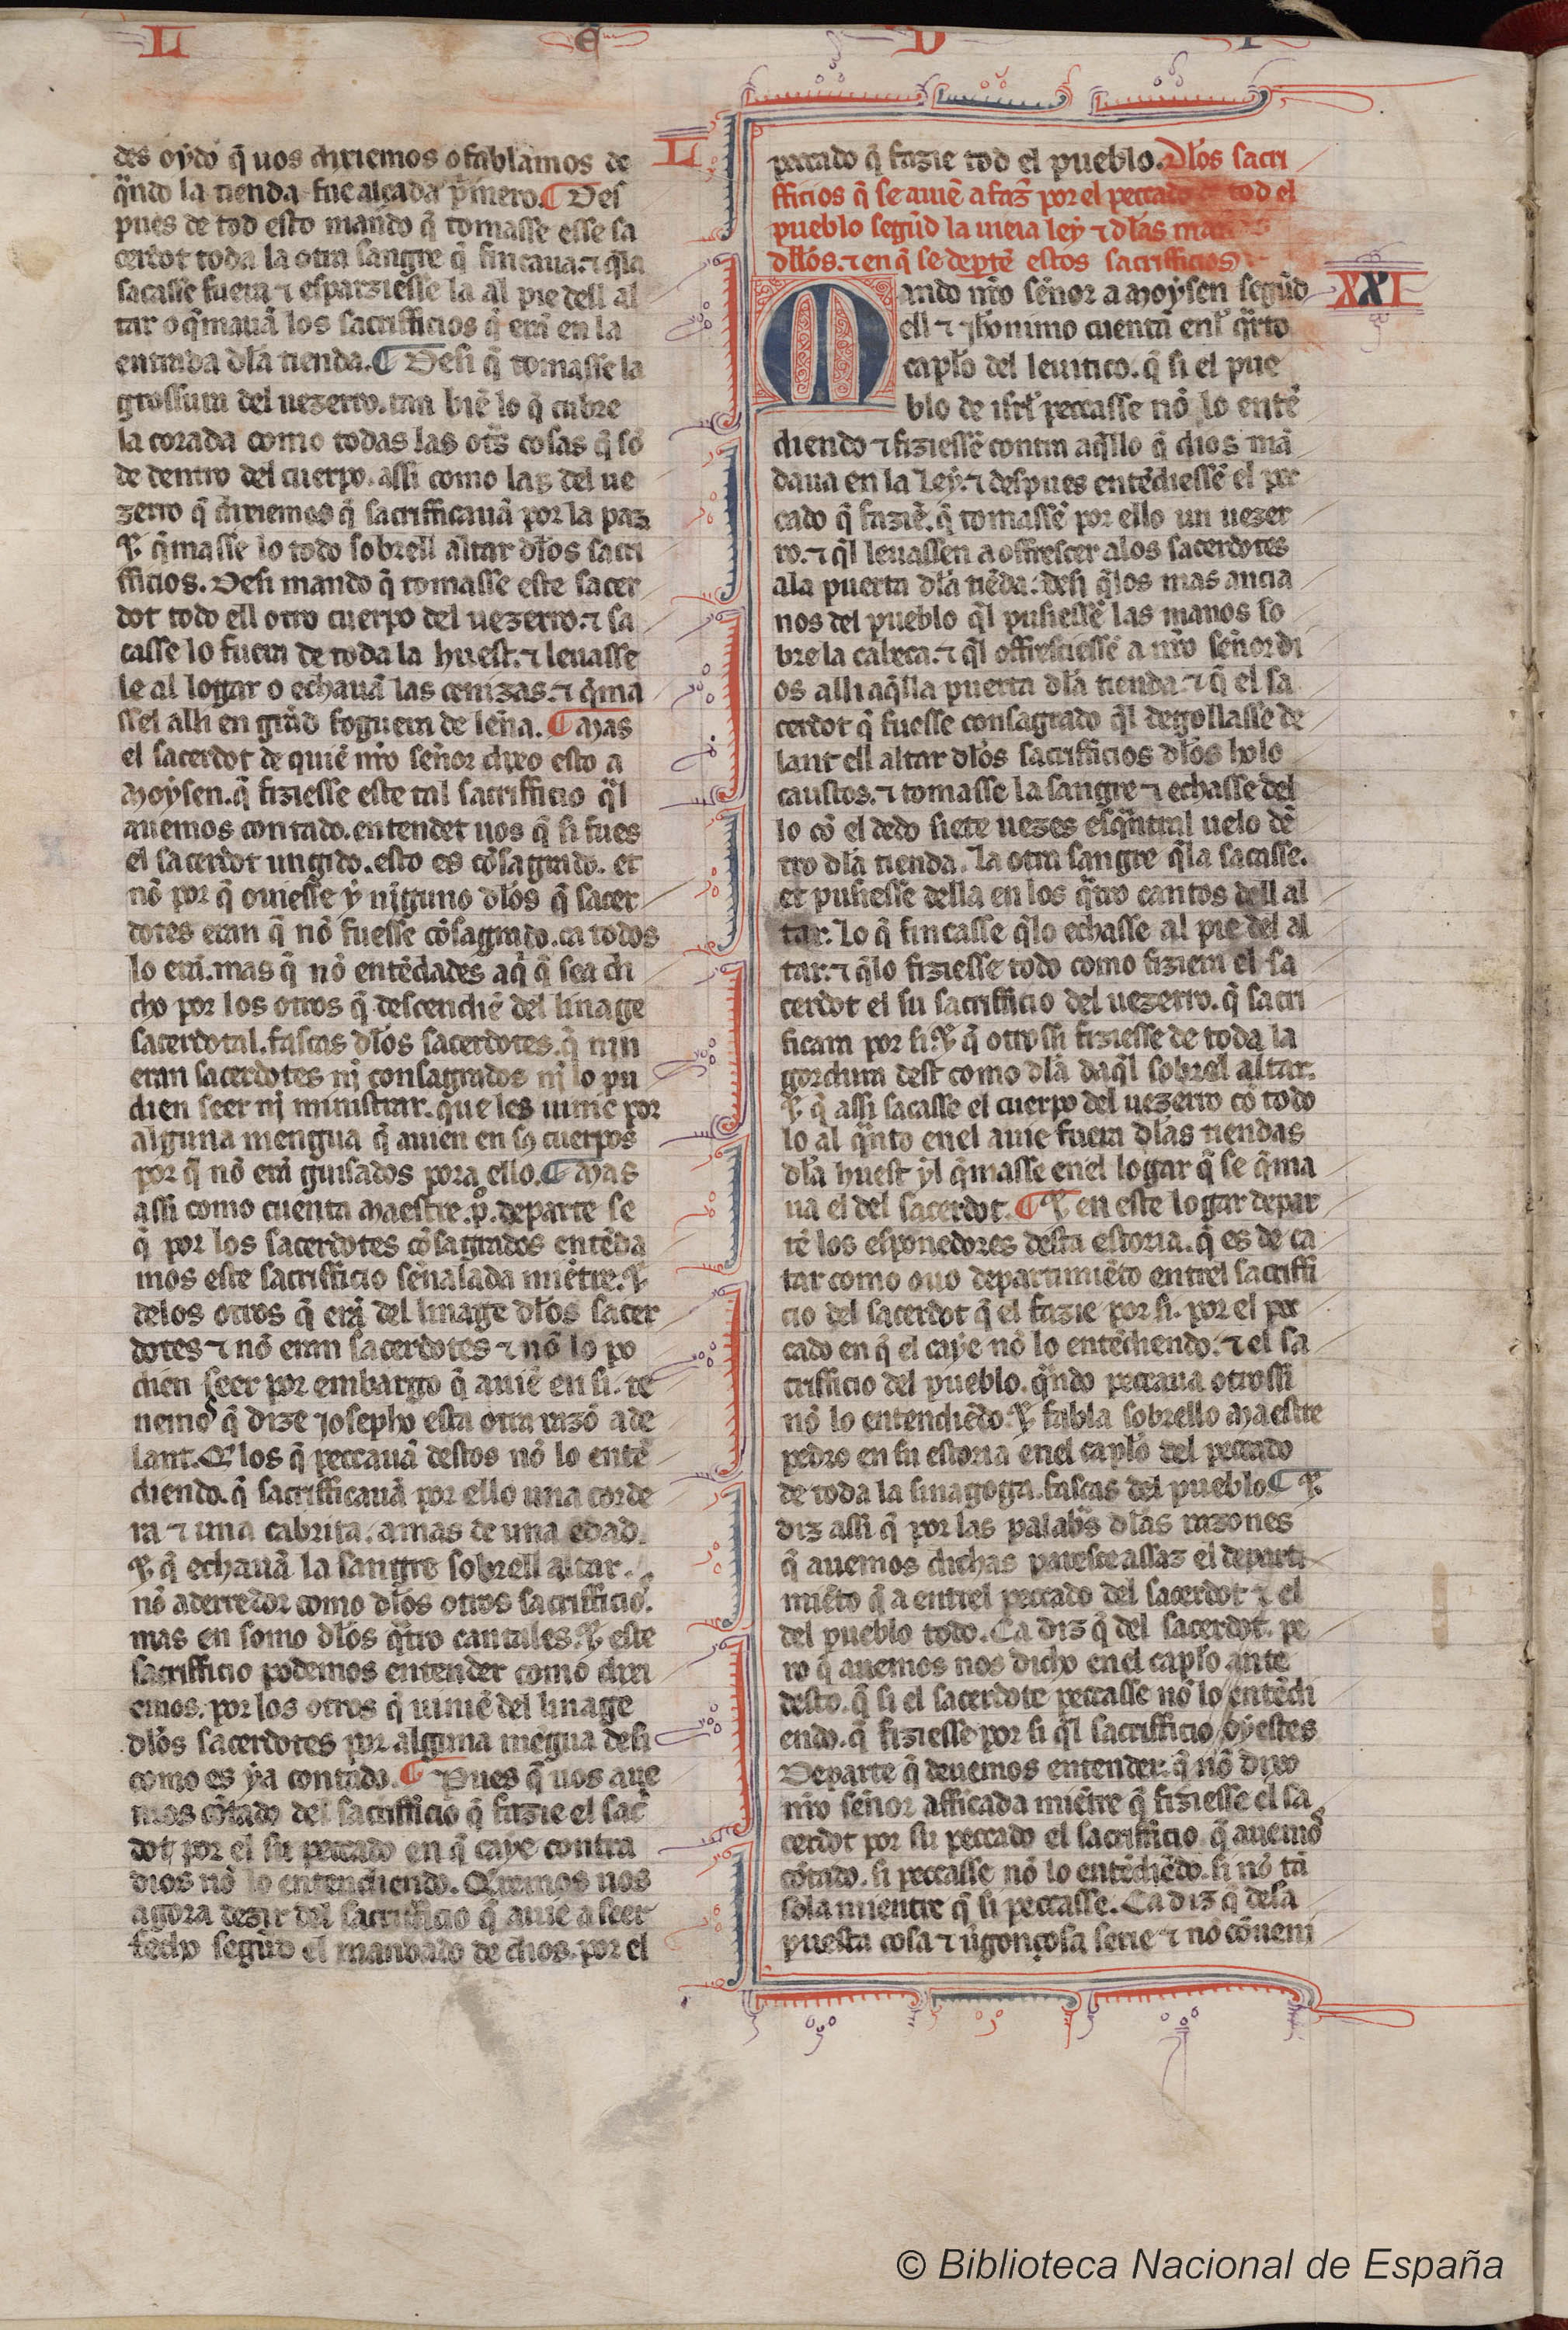 L E D I
des oydo q̃ uos dixiemos o fablamos de
q̃ndo la tienda fue alçada p̃mero. ¶ Des
pues de tod esto mando q̃ tomasse esse sa
cerdot toda la otra sangre q̃ fincaua. ⁊ q̃la
sacasse fuera ⁊ esparziesse la al pie dell al
tar o q̃mauã los sacrifficios q̃ erã en la
entrada dl̃a tienda. ¶ Desi q̃ tomasse la
grossura del uezerro. tan biẽ lo q̃ cubre
la corada como todas las otr̃s cosas q̃ sõ
de dentro del cuerpo. assi como las del ue
zerro q̃ dixiemos q̃ sacrifficauã por la paz
⁊ q̃masse lo todo sobrell altar dl̃os sacri
fficios. Desi mando q̃ tomasse este sacer
dot todo ell otro cuerpo del uezerro. ⁊ sa
casse lo fuera de toda la huest. ⁊ leuasse
le al logar o echauã las cenizas. ⁊ q̃ma
ssel alli en grãd foguera de leña. ¶ Mas
el sacerdot de quiẽ nr̃o señor dixo esto a
Moysen. q̃ fiziesse este tal sacrifficio q̃l
auemos contado. entendet uos q̃ si fues
el sacerdot ungido. esto es cõsagrado. et
nõ por q̃ ouiesse y niguno dl̃os q̃ sacer
dotes eran q̃ nõ fuesse cõsagrado. ca todos
lo erã. mas q̃ nõ entẽdades aq̃ q̃ sea di
cho por los otros q̃ descendiẽ del linage
sacerdotal. fascas dl̃os sacerdotes. q̃ nin
eran sacerdotes nj consagrados nj lo pu
dien seer nj ministrar. que les uinie por
alguna mengua q̃ auien en sꝯ cuerpos
por q̃ nõ erã guisados pora ello. ¶ Mas
assi como cuenta maestre .p̊. departe se
q̃ por los sacerdotes cõsagrados entẽda
mos este sacrifficio señalada miẽtre. ⁊
delos otros q̃ erã del linage dl̃os sacer
dotes ⁊ nõ eran sacerdotes ⁊ nõ lo po
dien seer por embargo q̃ auiẽ en si. te
nemos q̃ dize Josepho esta otra razõ ade
lant. Q̃ los q̃ peccauã destos nõ lo entẽ
diendo. q̃ sacrifficauã por ello una corde
ra ⁊ una cabrita. amas de una edad.
⁊ q̃ echauã la sangre sobrell altar.
nõ aderredor como dl̃os otros sacrifficiõ.
mas en somo dl̃os q̃tro cantales. ⁊ este
sacrifficio podemos entender como dixi
emos. por los otros q̃ uiniẽ del linage
dl̃os sacerdotes por alguna mẽgua desi
como es ya contado. ¶ Pues q̃ uos aue
mos cõtado del sacrifficio q̃ fazie el sac̃
dot por el su peccado en q̃ caye contra
dios nõ lo entendiendo. Q̃remos nos
agora dezir del sacrifficio q̃ auie a seer
fecho segũd el mandado de dios. por el
L
peccado q̃ fazie tod el pueblo. Dl̃os sacri
fficios q̃ se auiẽ a faz̃ por el peccado de tod el
pueblo segũd la uieia ley ⁊ dl̃as
dl̃los. ⁊ en q̃ se deptẽ estos sacrifficios
XXI
Mando nr̃o señor a Moysen segũd
ell ⁊ Jh̃onimo cuentã enl̃ q̃rto
caplo del leuitico. q̃ si el pue
blo de isrl̃ peccasse nõ lo entẽ
diendo ⁊ fiziessẽ contra aq̃llo q̃ dios mã
daua en la Ley. ⁊ despues entẽdiessẽ el pec
cado q̃ faziẽ. q̃ tomassẽ por ello un uezer
ro. ⁊ q̃l leuassen a offrescer alos sacerdotes
ala puerta dl̃a tiẽda. desi q̃los mas ancia
nos del pueblo q̃l pusiessẽ las manos so
bre la cabeça. ⁊ q̃l offresciessẽ a nr̃o señor di
os alli aq̃lla puerta dl̃a tienda. ⁊ q̃ el sa
cerdot q̃ fuesse consagrado q̃l degollasse de
lant ell altar dl̃os sacrifficios dl̃os holo
caustos. ⁊ tomasse la sangre ⁊ echasse del
lo cõ el dedo siete uezes esq̃ntral uelo dẽ
tro dl̃a tienda. La otra sangre q̃la sacasse.
et pusiesse della en los q̃tro cantos dell al
tar. Lo q̃ fincasse q̃lo echasse al pie del al
tar. ⁊ q̃lo fiziesse todo como fiziera el sa
cerdot el su sacrifficio del uezerro. q̃ sacri
ficara por si. ⁊ q̃ otrossi fiziesse de toda la
gordura dest como dl̃a daq̃l sobrel altar.
⁊ q̃ assi sacasse el cuerpo del uezerro cõ todo
lo al q̃nto enel auie fuera dl̃as tiendas
dl̃a huest yl q̃masse enel logar q̃ se q̃ma
ua el del sacerdot. ¶ ⁊ en este logar depar
tẽ los esponedores desta estoria. q̃ es de ca
tar como ouo departimiẽto entrel sacriffi
cio del sacerdot q̃ el fazie por si. por el pec
cado en q̃ el caye nõ lo entẽdiendo. ⁊ el sa
crifficio del pueblo. q̃ndo peccaua otrossi
nõ lo entendiẽdo. ⁊ fabla sobrello Maestre
pedro en su estoria enel caplo del peccado
de toda la sinagoga. fascas del pueblo. ¶ ⁊
diz assi q̃ por las palabr̃s dl̃as razones
q̃ auemos dichas paresce assaz el departi
miẽto q̃ a entrel peccado del sacerdot ⁊ el
del pueblo todo. Ca diz q̃ del sacerdot. pe
ro q̃ auemos nos dicho enel caplo ante
desto. q̃ si el sacerdote peccasse nõ lo entẽdi
endo. q̃ fiziesse por si q̃l sacrifficio oyestes
Departe q̃ deuemos entender. q̃ nõ dixo
nr̃o señor afficada miẽtre q̃ fiziesse el sa
cerdot por su peccado el sacrifficio q̃ auemõ
cõtado. si peccasse nõ lo entẽdiẽdo. si nõ tã
sola mientre q̃ si peccasse. Ca diz q̃ desa
puesta cosa ⁊ ũgonçosa serie ⁊ nõ cõueni
© Biblioteca Nacional de España